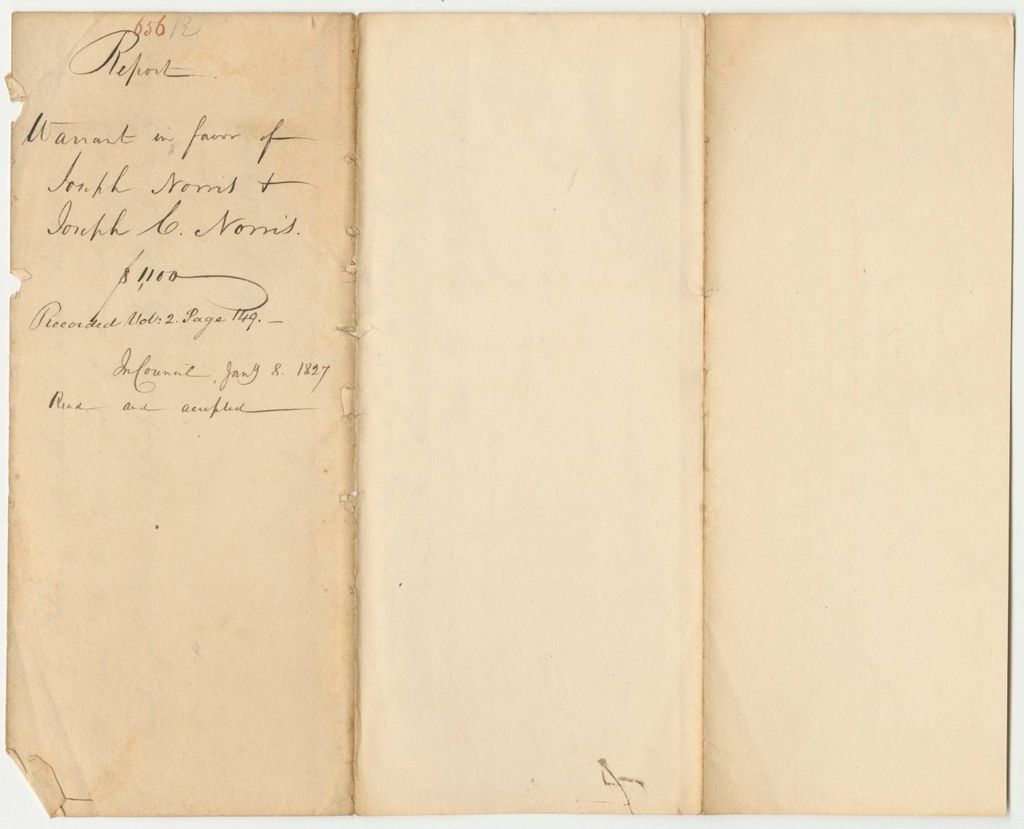 656 12
Report
Warrant in favor of
Joseph Norris &
Joseph C. Norris.
$1,100
Recorded Vol: 2. Page 149.
In Council, Jany 8. 1827
Read and accepted